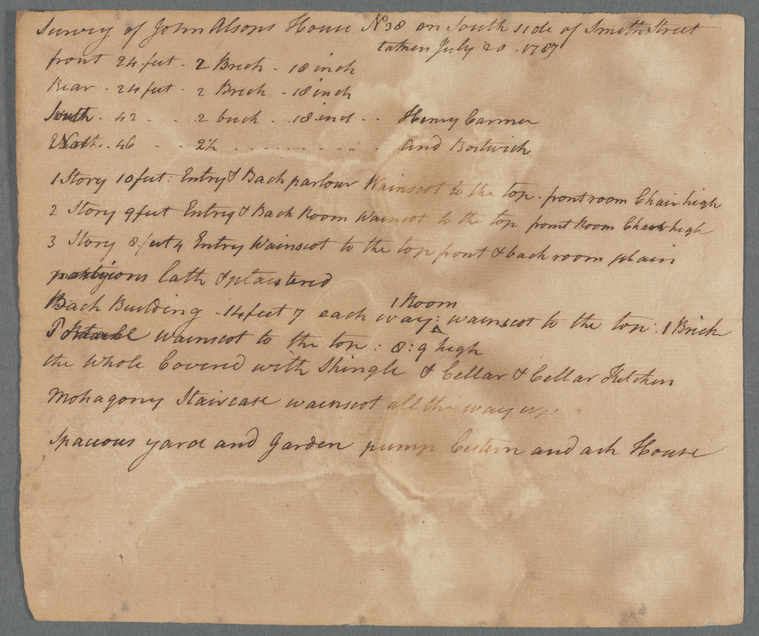 Survey of John Alsops House No 38 on South side of Smith Street
taken July 20 1787
front 24 feet - 2 Brick - 18 inch
Rear - 24 feet - 2 Brick - 18 inch
South - 42 - - 2 brick - 18 inch - - Henry Carmer
- 46 - - 2½ - - - - - - - - - and Bostwick
1 Story 10 feet: Entry & Back parlour Wainscot to the top - front room Chair high
2 Story 9 feet Entry & Back Room Wainscot to the top front Room Chair high
3 Story 8 feet 4 Entry Wainscot to the top front & back room plain
partijions lath & plaistered
Back Building - 14 feet 7 each way: 1 Room wainscot to the top: 1 Brick
wainscot to the top: 8:9 high
the whole Covered with Shingle & Cellar & Cellar Kitchen
Mohagony Staircase wainscot all the way up.
Spacious yard and Garden pump Cestern and ash House